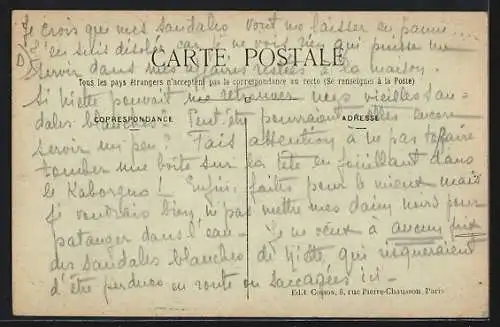 Je crois que mes sandales vont me laisser en panne....
J'en suis désolée car je ne vois rien qui puisse me
CARTE POSTALE
servir dans mes affaires restées à la maison.
Tous les pays étrangers n'acceptent pas la correspondance au recto (Se renseigner à la Poste)
Si Miette pouvait me retrouver mes vieilles san-
dales blanches - Peut-être pourraient-elles encore
CORRESPONDANCE
ADRESSE
servir un peu? Fais attention à ne pas te faire
tomber une boîte sur la tête en fouillant dans
le ! Enfin faites pour le mieux mais
je voudrais bien ne pas mettre mes daim noirs pour
patauger dans l'eau - Je ne veux à aucun prix
des sandales blanches de Miette, qui risqueraient
d'être perdues en route ou saccagées ici -
Edit. Cosson, 8, rue Pierre-Chausson, Paris